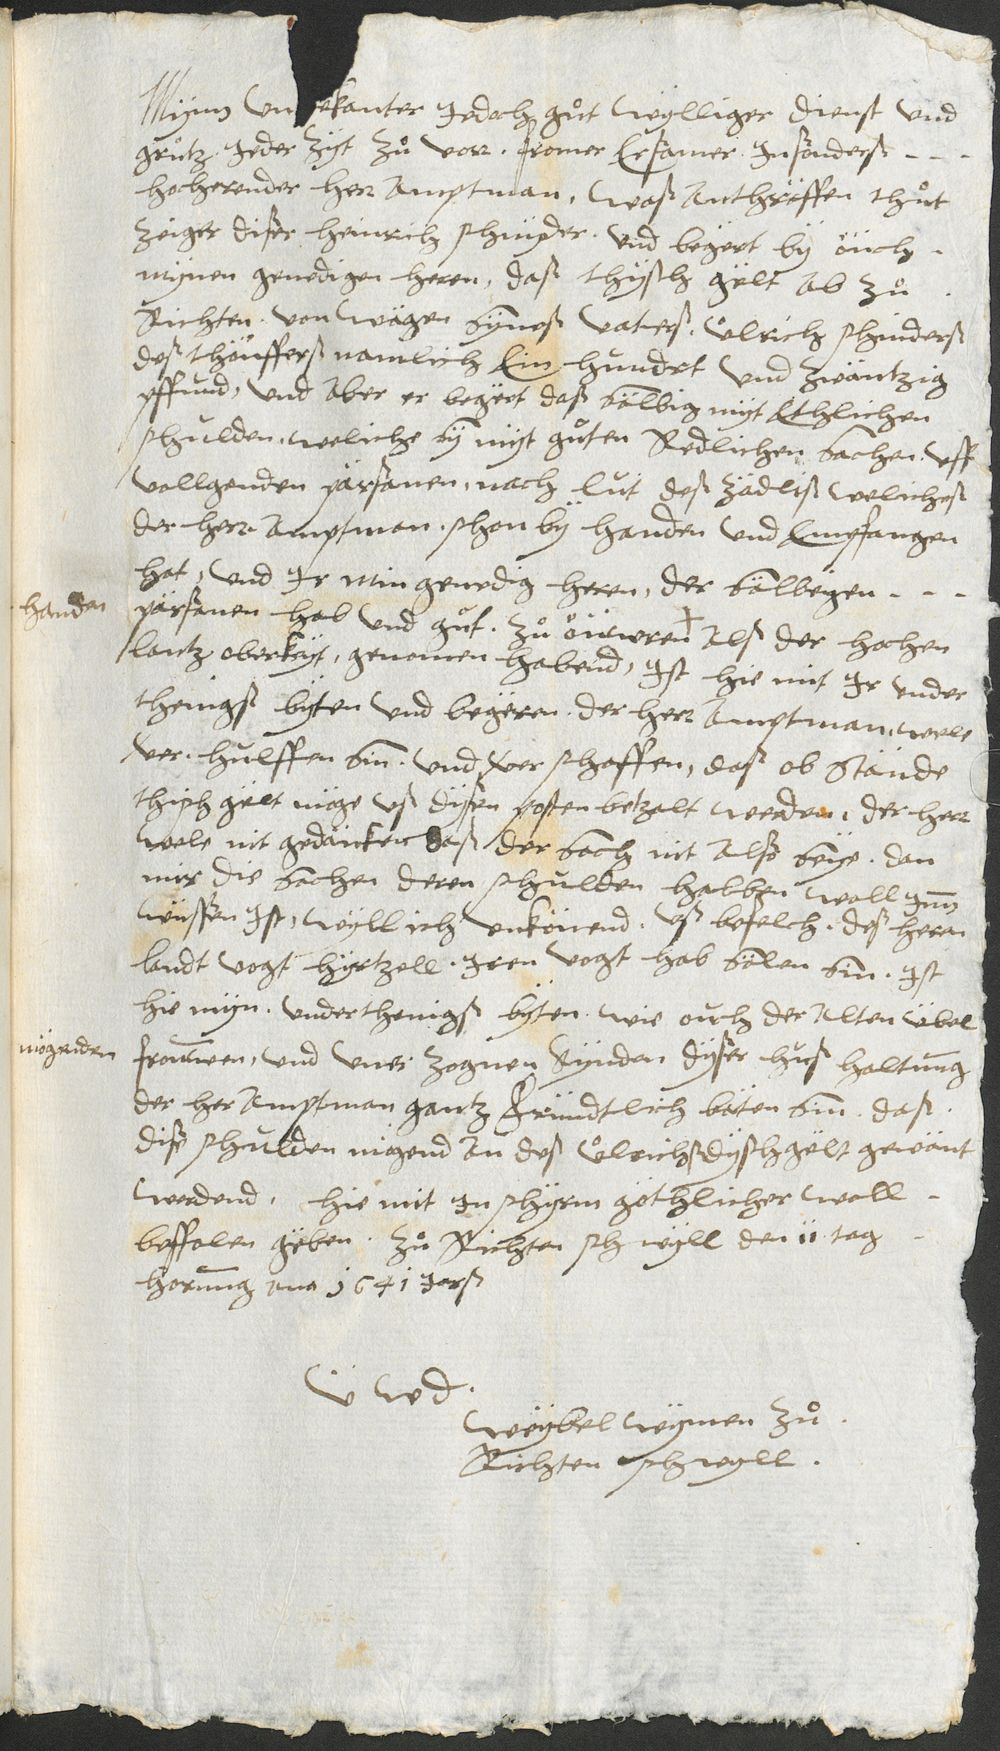 Mynn un ekanter Jedoch gůt wylliger dienst und
grůtz Jeder zyt zů vor. fromer Ersamer Jnsonders - - -
hocherender herr Amptman, waß Anthräffen thůt
zeiger diser heinrich schnyder. und begert by öüch -
mynen genedigen heren, daß thysch gelt Ab zů
Richten von wägen synes vatters. ůlrich schniders
deß thöuffers namlich Ein hundert und zwäntzig
pffund, und Aber er begert daß sälbig myt Ethlichen
schulden, weliche sy myt gůten Redlichen sachen uff
vollgenden pärsanen, nach lut deß zädliß weliches
der herr Amptman schon by handen und Empfangen
hat, und Jr min genedig heren, der sälbeigen - - -
handen
pärsanen hab und gůt. zů öüweren + Alß der hochen
lantz oberkeyt, genomen habend, Jst hie mit Jr under
thenigs byten und begeren. der herr Amptman, wele
ver hulffen sin und ver schaffen, daß ob stände
thisch gelt möge uß disen posten betzalt werden, der herr
wele nit gedäncken daß der sach nit Alse seye. dan
mir die sachen deren schulden halben woll Jnn
wüssen Jst, wyll ich unkönend. uß befelch. deß heren
landt vogt hyrtzell. Jren vogt hab sölen sin. Jst
hie myn. underthenigs byten. wie ouch der Alten übel
mögenden
frouwen, und uner zognen kynden dyser huß haltung
der her Amptman gantz fründtlich bäten sin. daß
dise schulden mögend An deß ůlrichs dysch gelt gewänt
werdend. hie mit Jn schyrm göthlicher woll -
beffolen geben. zů Richten schwyll den 11 tag -
hornung ano 1641 Jars
ü w d.
weybel wymen zů
Richten schwyll.